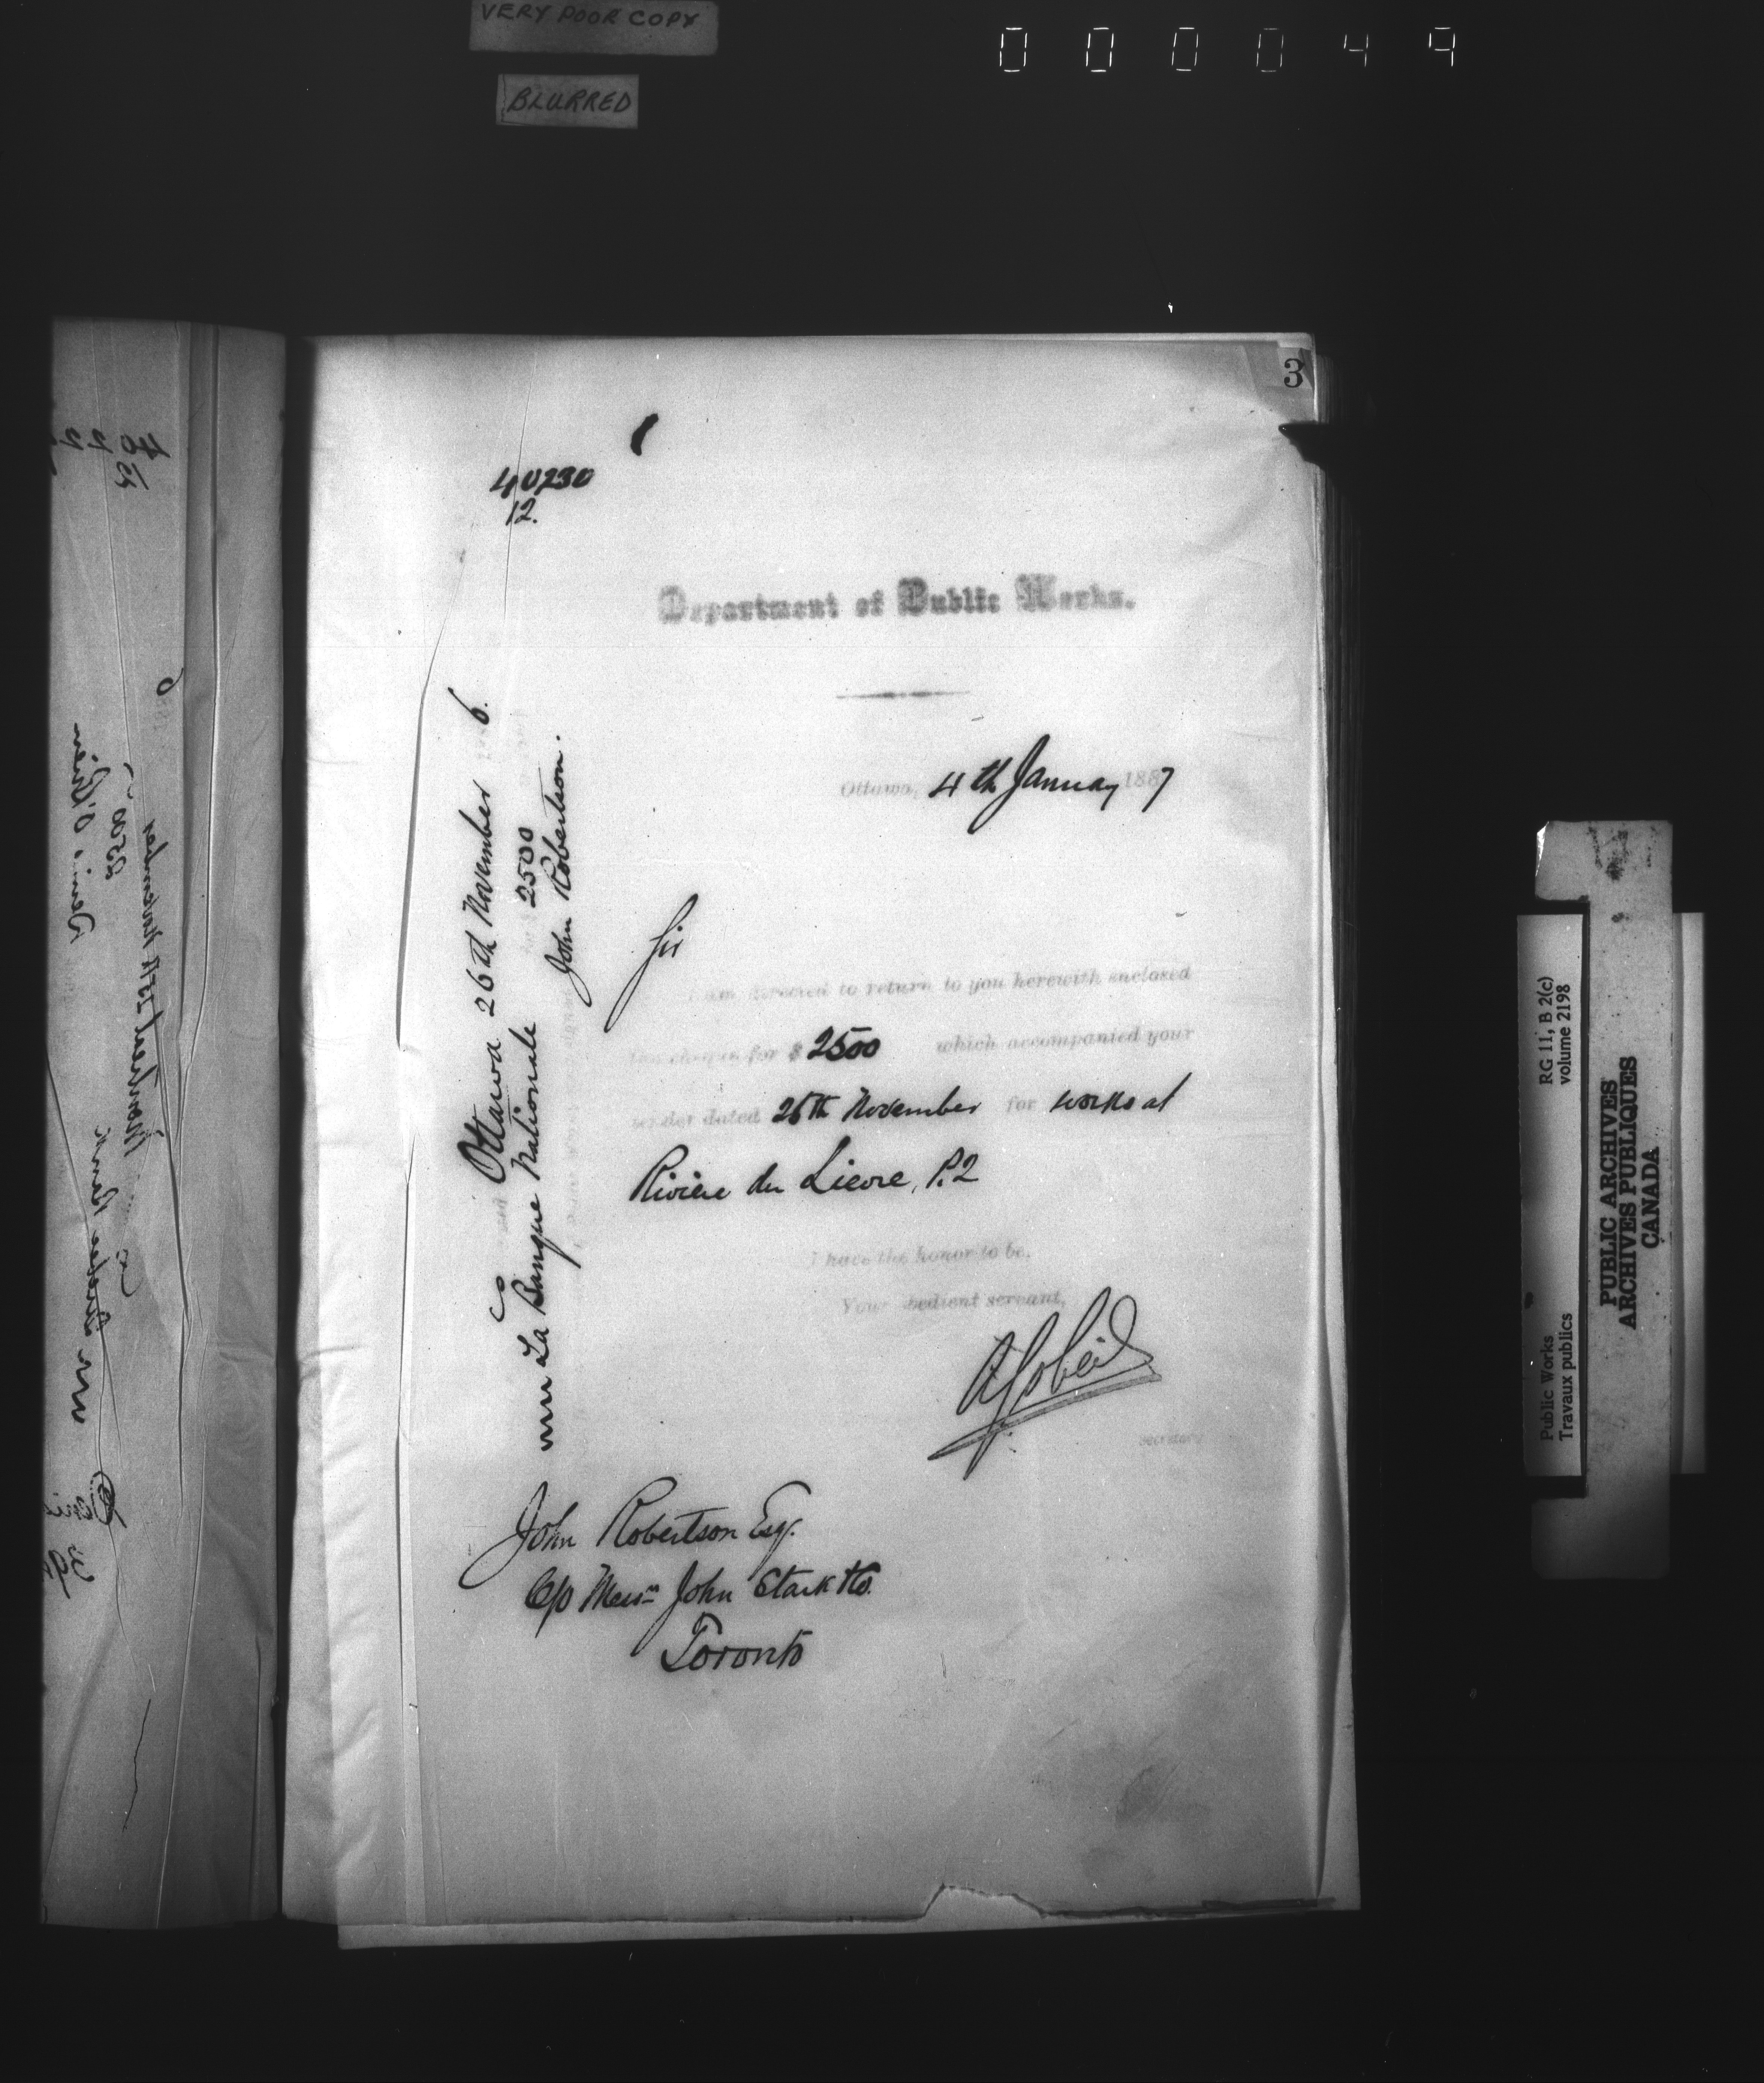 VERY POOR COPY
BLURRED
000049
3
40230
12.
Department of Public Works.
Ottawa, 4th January 1887
Sir
I am directed to return to you herewith enclosed
the cheque for $ 2500 which accompanied your
tender dated 26th November for works at
Rivière du Lievre, P.2
I have the honor to be,
Your obedient servant,
A Gobeil
Secretary
John Robertson Esq.
C/o Messrs John Stark & Co.
Toronto
Ottawa 26th November 6.
La Banque Nationale 2500
John Robertson.
Public Works
Travaux publics
RG 11, B 2(c)
volume 2198
PUBLIC ARCHIVES
ARCHIVES PUBLIQUES
CANADA